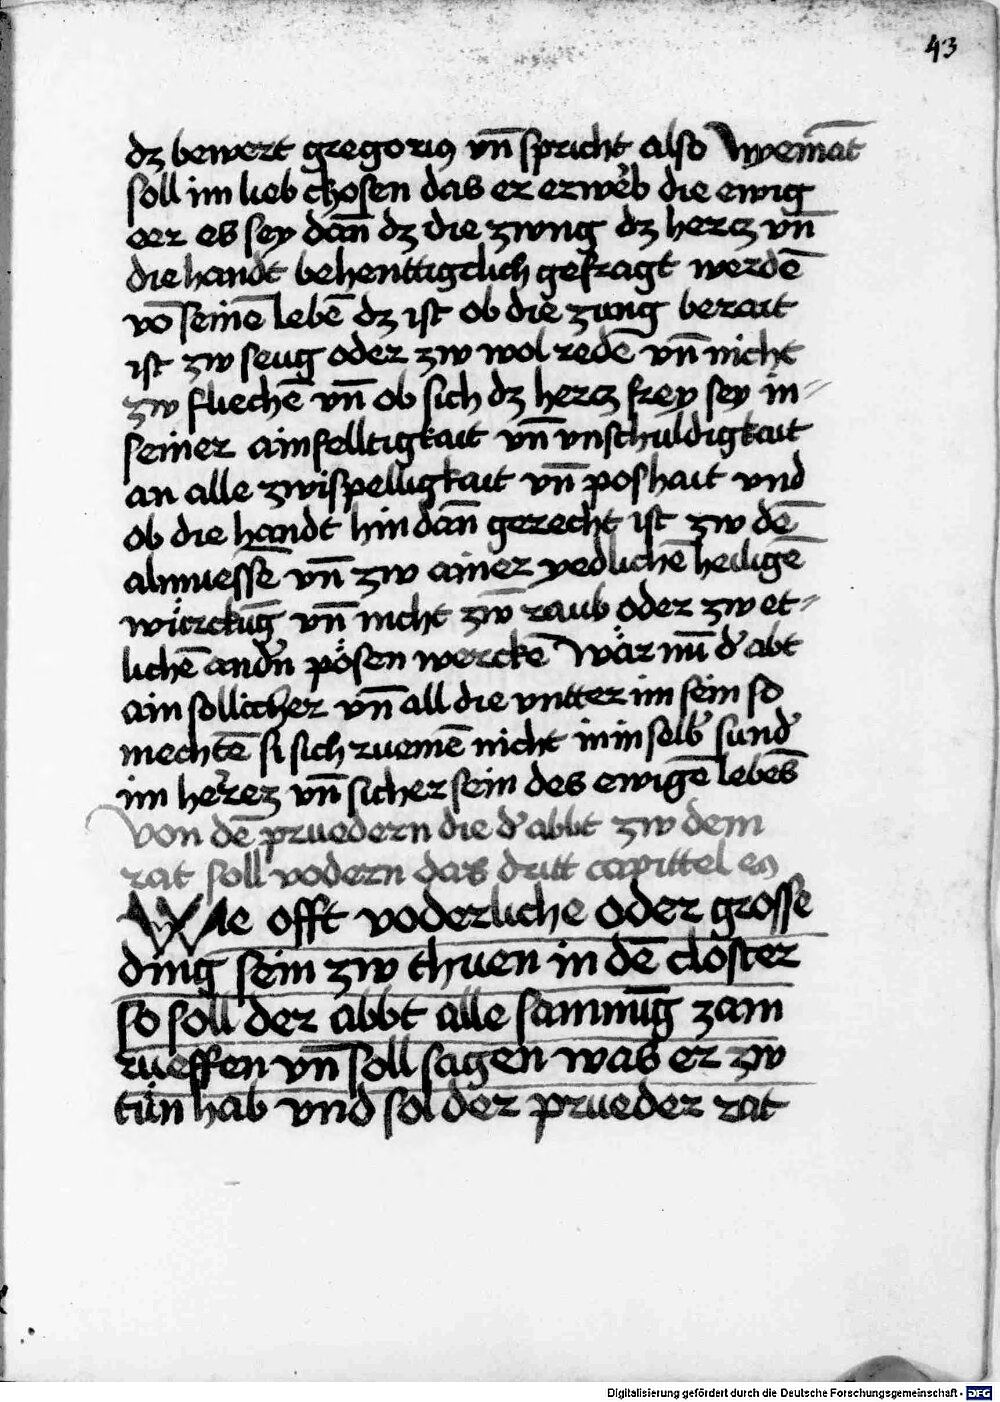 43
dz bewert gregorius vn̄ spricht also Wyemāt
soll im lieb chosen das er erwe᷑b die ewig
eer es sey dan̄ dz die zwng dz hercz vn̄
die handt behenttigclich gefragt werdē
vō seinē lebē dz ist ob die zung berait
ist zw seug oder zw wol redē vn̄ nicht
zw fliechē vn̄ ob sich dz hercz frey sey in-
seiner ainfelltigkait vn̄ vnschuldigkait
an alle zwispelligkait vn̄ poshait vnd
ob die handt hin dan̄ gerecht ist zw dē
almuessē vn̄ zw ainer yedlichē heiligē
würckūg vn̄ nicht zw̄ raub oder zw et-
lichē andn̄ pösen werckē Wär nū d᷑ abt
ain sollicher vn̄ all die vntter im sein so
mechtē si sich ruemē nicht in in selb᷑ sund᷑
im herez vn̄ sicher sein des ewigē lebēs
Von dē pruedern die d᷑ abbt zw dem
rat soll vodern das dritt capittel
Wie offt voderliche oder grosse
ding sein zw thuen in dē closter
so soll der abbt alle sammūg zam
rueffen vn̄ soll sagen was er zw
tün hab vnd sol der prueder rat
Digitalisierung gefördert durch die Deutsche Forschungsgemeinschaft - DFG